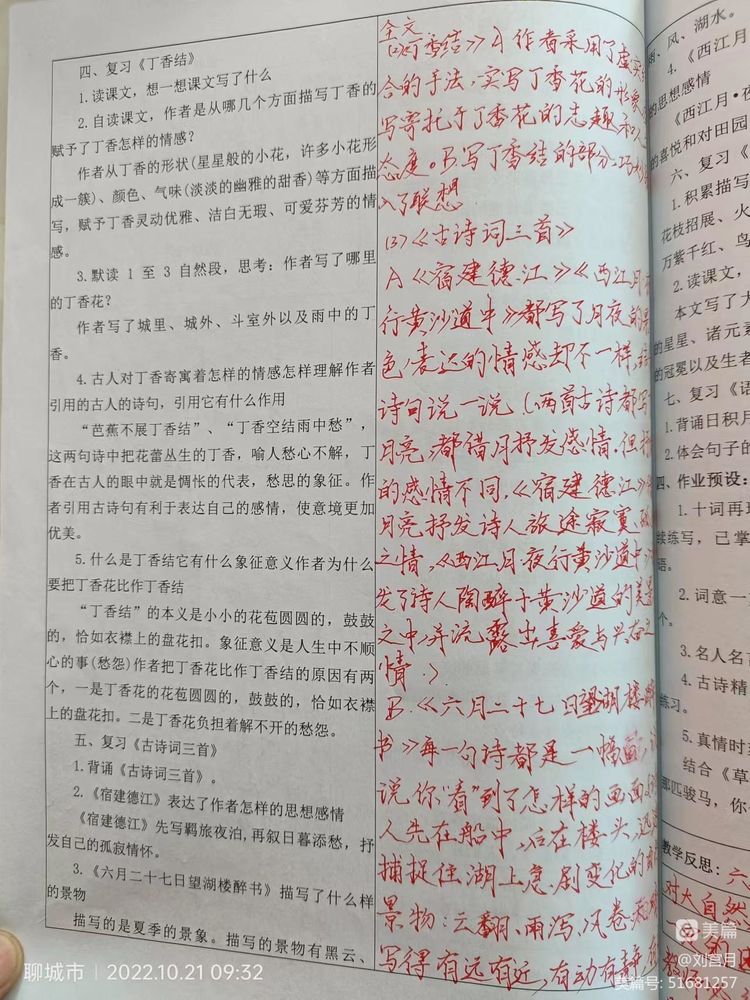 四、复习《丁香结》
1.读课文，想一想课文写了什么
2.自读课文，作者是从哪几个方面描写丁香的
赋予了丁香怎样的情感？
作者从丁香的形状(星星般的小花，许多小花形
成一簇)、颜色、气味(淡淡的幽雅的甜香)等方面描
写，赋予丁香灵动优雅、洁白无瑕、可爱芬芳的情
感。
3.默读 1 至 3 自然段，思考：作者写了哪里
的丁香花？
作者写了城里、城外、斗室外以及雨中的丁
香。
4.古人对丁香寄寓着怎样的情感怎样理解作者
引用的古人的诗句，引用它有什么作用
“芭蕉不展丁香结”、“丁香空结雨中愁”，
这两句诗中把花蕾丛生的丁香，喻人愁心不解，丁
香在古人的眼中就是惆怅的代表，愁思的象征。作
者引用古诗句有利于表达自己的感情，使意境更加
优美。
5.什么是丁香结它有什么象征意义作者为什么
要把丁香花比作丁香结
“丁香结”的本义是小小的花苞圆圆的，鼓鼓
的，恰如衣襟上的盘花扣。象征意义是人生中不顺
心的事(愁怨)作者把丁香花比作丁香结的原因有两
个，一是丁香花的花苞圆圆的，鼓鼓的，恰如衣襟
上的盘花扣。二是丁香花负担着解不开的愁怨。
五、复习《古诗词三首》
1.背诵《古诗词三首》。
2.《宿建德江》表达了作者怎样的思想感情
《宿建德江》先写羁旅夜泊,再叙日暮添愁，抒
发自己的孤寂情怀。
3.《六月二十七日望湖楼醉书》描写了什么样
的景物
描写的是夏季的景象。描写的景物有黑云、
全文
丁香结》A 作者采用了虚实
合的手法，实写丁香花的形象
写寄托于丁香花的志趣和
态度。B.写丁香结的部分巧妙
入了联想
(3)《古诗词三首》
A《宿建德江》《西江月
行黄沙道中》都写了月夜的景
色，表达的情感却不一样，结
诗句说一说（两首古诗都写
月亮，都借月抒发感情，但抒
的感情不同，《宿建德江》
月亮抒发诗人旅途寂寞、
之情，《西江月·夜行黄沙道中》
发了诗人陶醉于黄沙道的美景
之中，并流露出喜爱与兴奋之
情 ）.
B.《六月二十七日望湖楼醉
书》每一句诗都是一幅画，
说，你“看”到了怎样的画面
人先在船中，后在楼头，迅速
捕捉住湖上急剧变化的
景物：云翻、雨泻、风卷
写得有远有近，有动有静，
雨、风、湖水。
4.《西江月
的思想感情
《西江月·夜
的喜悦和对田园
六、复习《
1.积累描写
花枝招展、火
万紫千红、鸟
2.读课文，
本文写了大
的星星、诸元素
的冠冕以及生者
七、复习《语
1.背诵日积月
2.体会句子的
四、作业预设：
1.十词再现
续练写，已掌
语。
2.词意一
个。
3.名人名言
4.古诗精
练习。
5.真情时刻
结合《草
那匹骏马，你
教学反思：六
对大自然
聊城市 | 2022.10.21 09:32
美篇
@刘宫月
美篇号：51681257